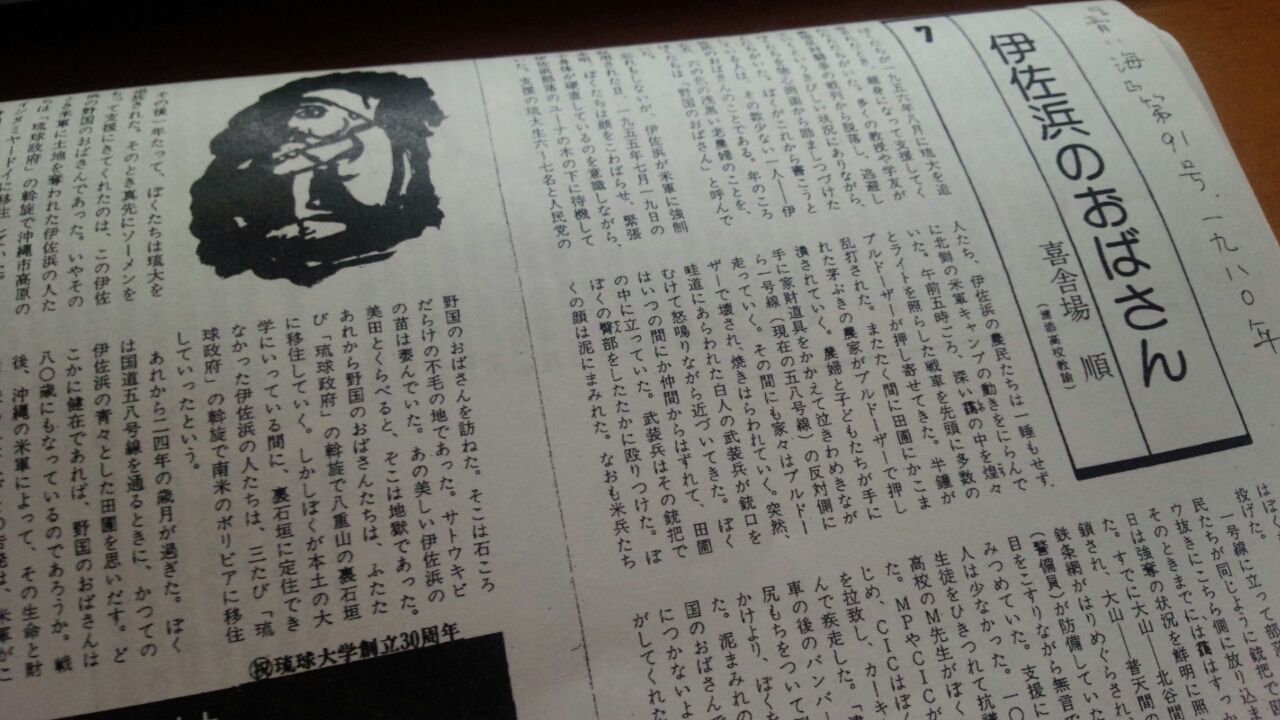 青い海 第91号・一九八〇年
7
伊佐浜のおばさん
喜舎場 順
たちが一九五六年八月に琉大を追
親身になって支援してく
多くの教授や学友が
の戦列から脱落し、逃避し
びしい状況にありながら、
両面から励ましつづけた
ぼくがこれから書こうと
その数少ない一人――伊
のおばさんのことである。年のころ
六〇の浅黒い老農婦のことを、
「野国のおばさん」と呼んで
もないが、伊佐浜が米軍に強制
一九五五年七月一九日の
ぼくたちは顔をこわばらせ、緊張
身体が硬直しているのを意識しながら、
伊佐浜部落のユーナの木の下に待機して
いた。支援の琉大生六〜七名と人民党の
人たち、伊佐浜の農民たちは一睡もせず、
に北側の米軍キャンプの動きをにらんで
いた。午前五時ごろ、深い靄の中を煌々
とライトを照らした戦車を先頭に多数の
ブルドーザーが押し寄せてきた。半鐘が
乱打された。またたく間に田圃にかこま
れた茅ぶきの農家がブルドーザーで押し
潰されていく。農婦と子どもたちが手に
手に家財道具をかかえて泣きわめきなが
ら一号線(現在の五八号線)の反対側に
走っていく。その間にも家々はブルドー
ザーで壊され、焼きはらわれていく。突然、
畦道にあらわれた白人の武装兵が銃口を
むけて怒鳴りながら近づいてきた。ぼく
はいつの間にか仲間からはずれて、田圃
の中に立っていた。武装兵はその銃把で
ぼくの臀部をしたたかに殴りつけた。ぼ
くの顔は泥にまみれた。なおも米兵たち
はぼく
投げた。
一号線に立って部落
民たちが同じように銃把で
ウ抜きにこちら側に放り込ま
そのときまでには靄はすっ
日は強奪の状況を鮮明に照
た。すでに大山――北谷間
鎖され、大山――普天間
鉄条網がはりめぐらされ
(警備員)が防備していた
目をこすりながら無言
みつめていた。支援に
人は少なかった。一〇
生徒をひきつれて抗議
高校のM先生がぼく
た。MPやCICが
じめ、CICはぼく
を拉致し、カーキ
んで疾走した。
車の後のバンパー
尻もちをついて
かけより、ぼくを
た。泥まみれの
国のおばさんで
につかないよ
がしてくれた
その後一年たって、ぼくたちは琉大を
追われた。そのとき真先にソーメンを
って支援にきてくれたのは、この伊佐
の野国のおばさんであった。いやその
米軍に土地を奪われた伊佐浜の人た
は「琉球政府」の斡旋で沖縄市高原の
インヌミヤードイに移住していた。
野国のおばさんを訪ねた。そこは石ころ
だらけの不毛の地であった。サトウキビ
の苗は萎んでいた。あの美しい伊佐浜の
美田とくらべると、そこは地獄であった。
あれから野国のおばさんたちは、ふたた
び「琉球政府」の斡旋で八重山の裏石垣
に移住していく。しかしぼくが本土の大
学にいっている間に、裏石垣に定住でき
なかった伊佐浜の人たちは、三たび「琉
球政府」の斡旋で南米のボリビアに移住
していったという。
あれから二四年の歳月が過ぎた。ぼく
は国道五八号線を通るときに、かつての
伊佐浜の青々とした田圃を思いだす。ど
こかに健在であれば、野国のおばさんは
八〇歳にもなっているのであろうか。戦
後、沖縄の米軍によって、その生命と財
㊗琉球大学創立30周年